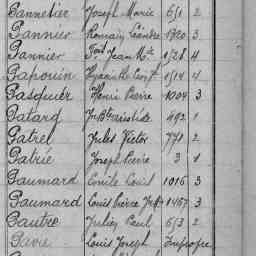 Pannetier Joseph Marie 6/1 2
Pannier Romain Léandre 1920 3
Pannier Jean Mie 1/28 4
Papouin Hyacinthe 1/14 4
Pasquer Henri Pierre 1004 3
Patard Aristide 492 1
Patrel Jules Victor 771 2
Patrié Joseph Pierre 3 1
Paumard Emile Louis 1016 3
Paumard Louis Pierre 1467 3
Pautre Julien Paul 6/3 2
Pavie Louis Joseph Impropre